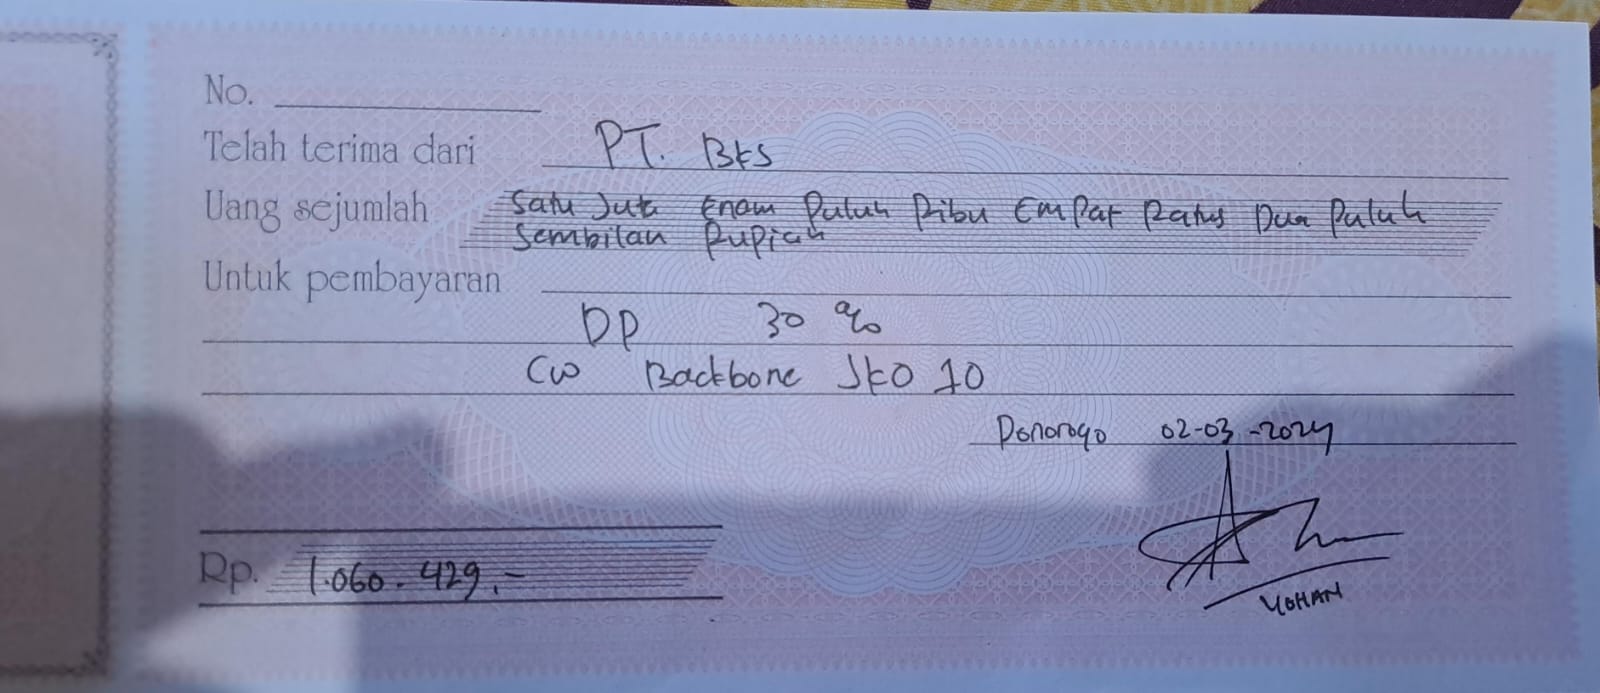 No.
Telah terima dari PT. BKS
Uang sejumlah Satu Juta Enam Puluh Ribu Empat Ratus Dua Puluh
Sembilan Rupiah
Untuk pembayaran
DP 30 %
CW Backbone JKO 10
Ponorogo 02-03-2024
Rp. 1.060.429,-
YOHAN